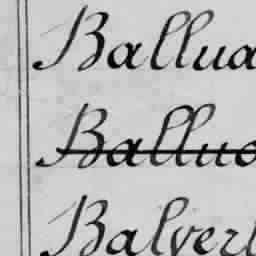 Ballua
Balluo
Balverl